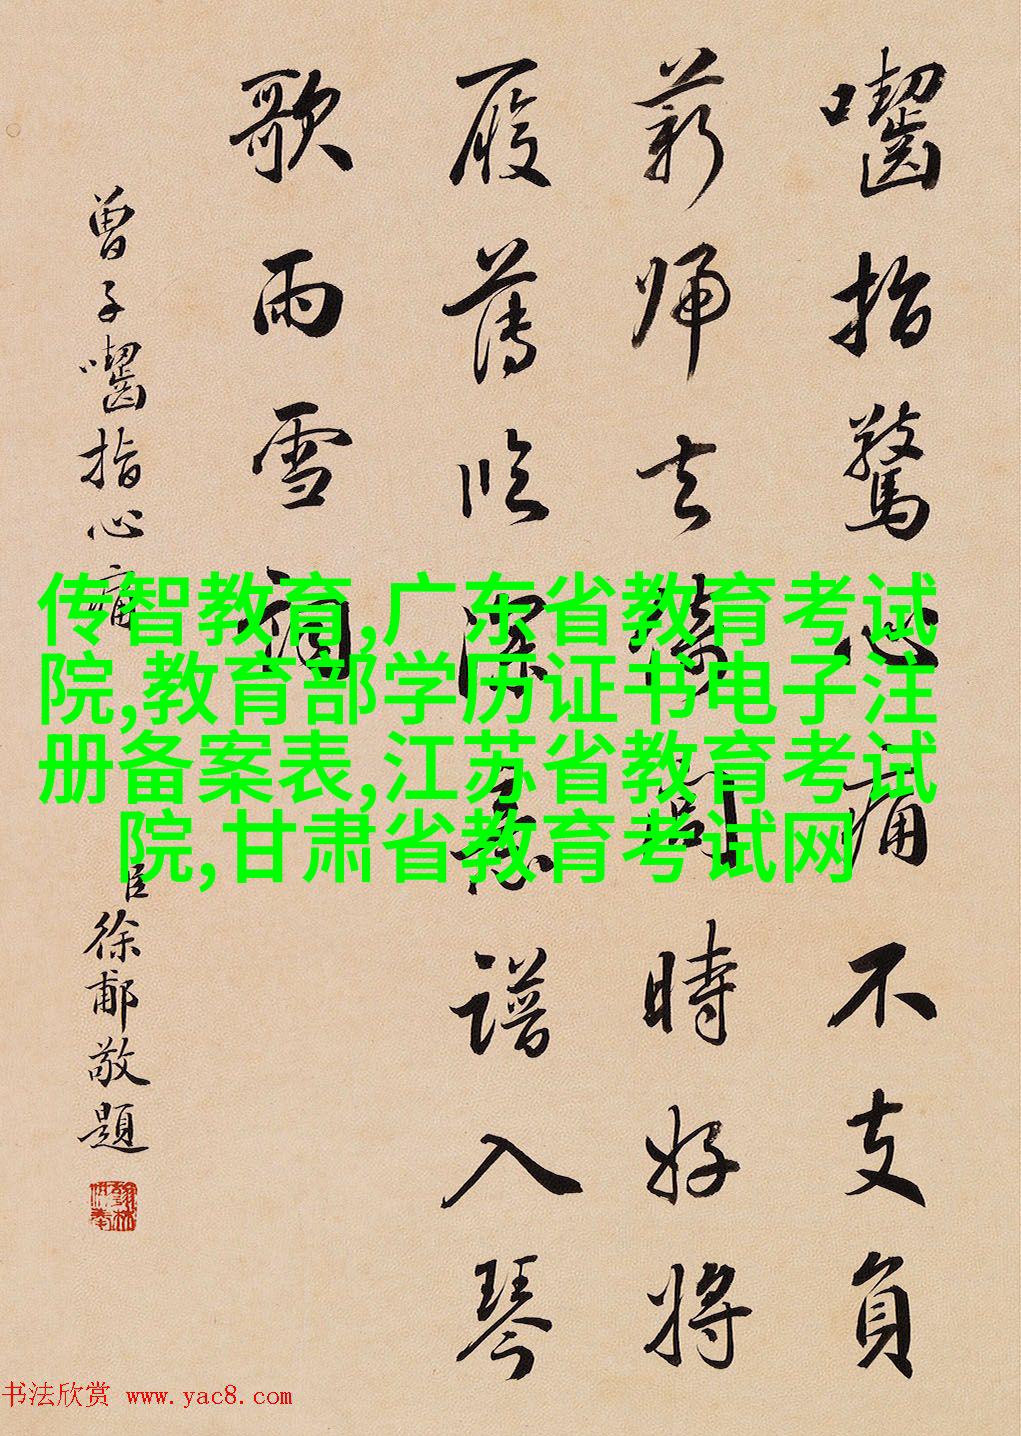 囓指驚心痛不支負
薪歸去閭時好將
履薄臨深意譜入琴
歌雨雪詞
曾子囓指心痛
臣徐郙敬題
传智教育,广东省教育考试
院,教育部学历证书电子注
册备案表,江苏省教育考试
院,甘肃省教育考试网
书法欣赏 www.yac8.com